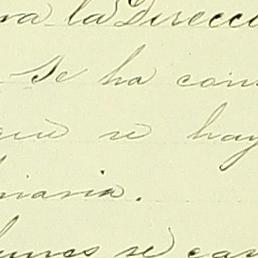 ra la Direcci
Se ha con
que se hay
maria.
lunes se can